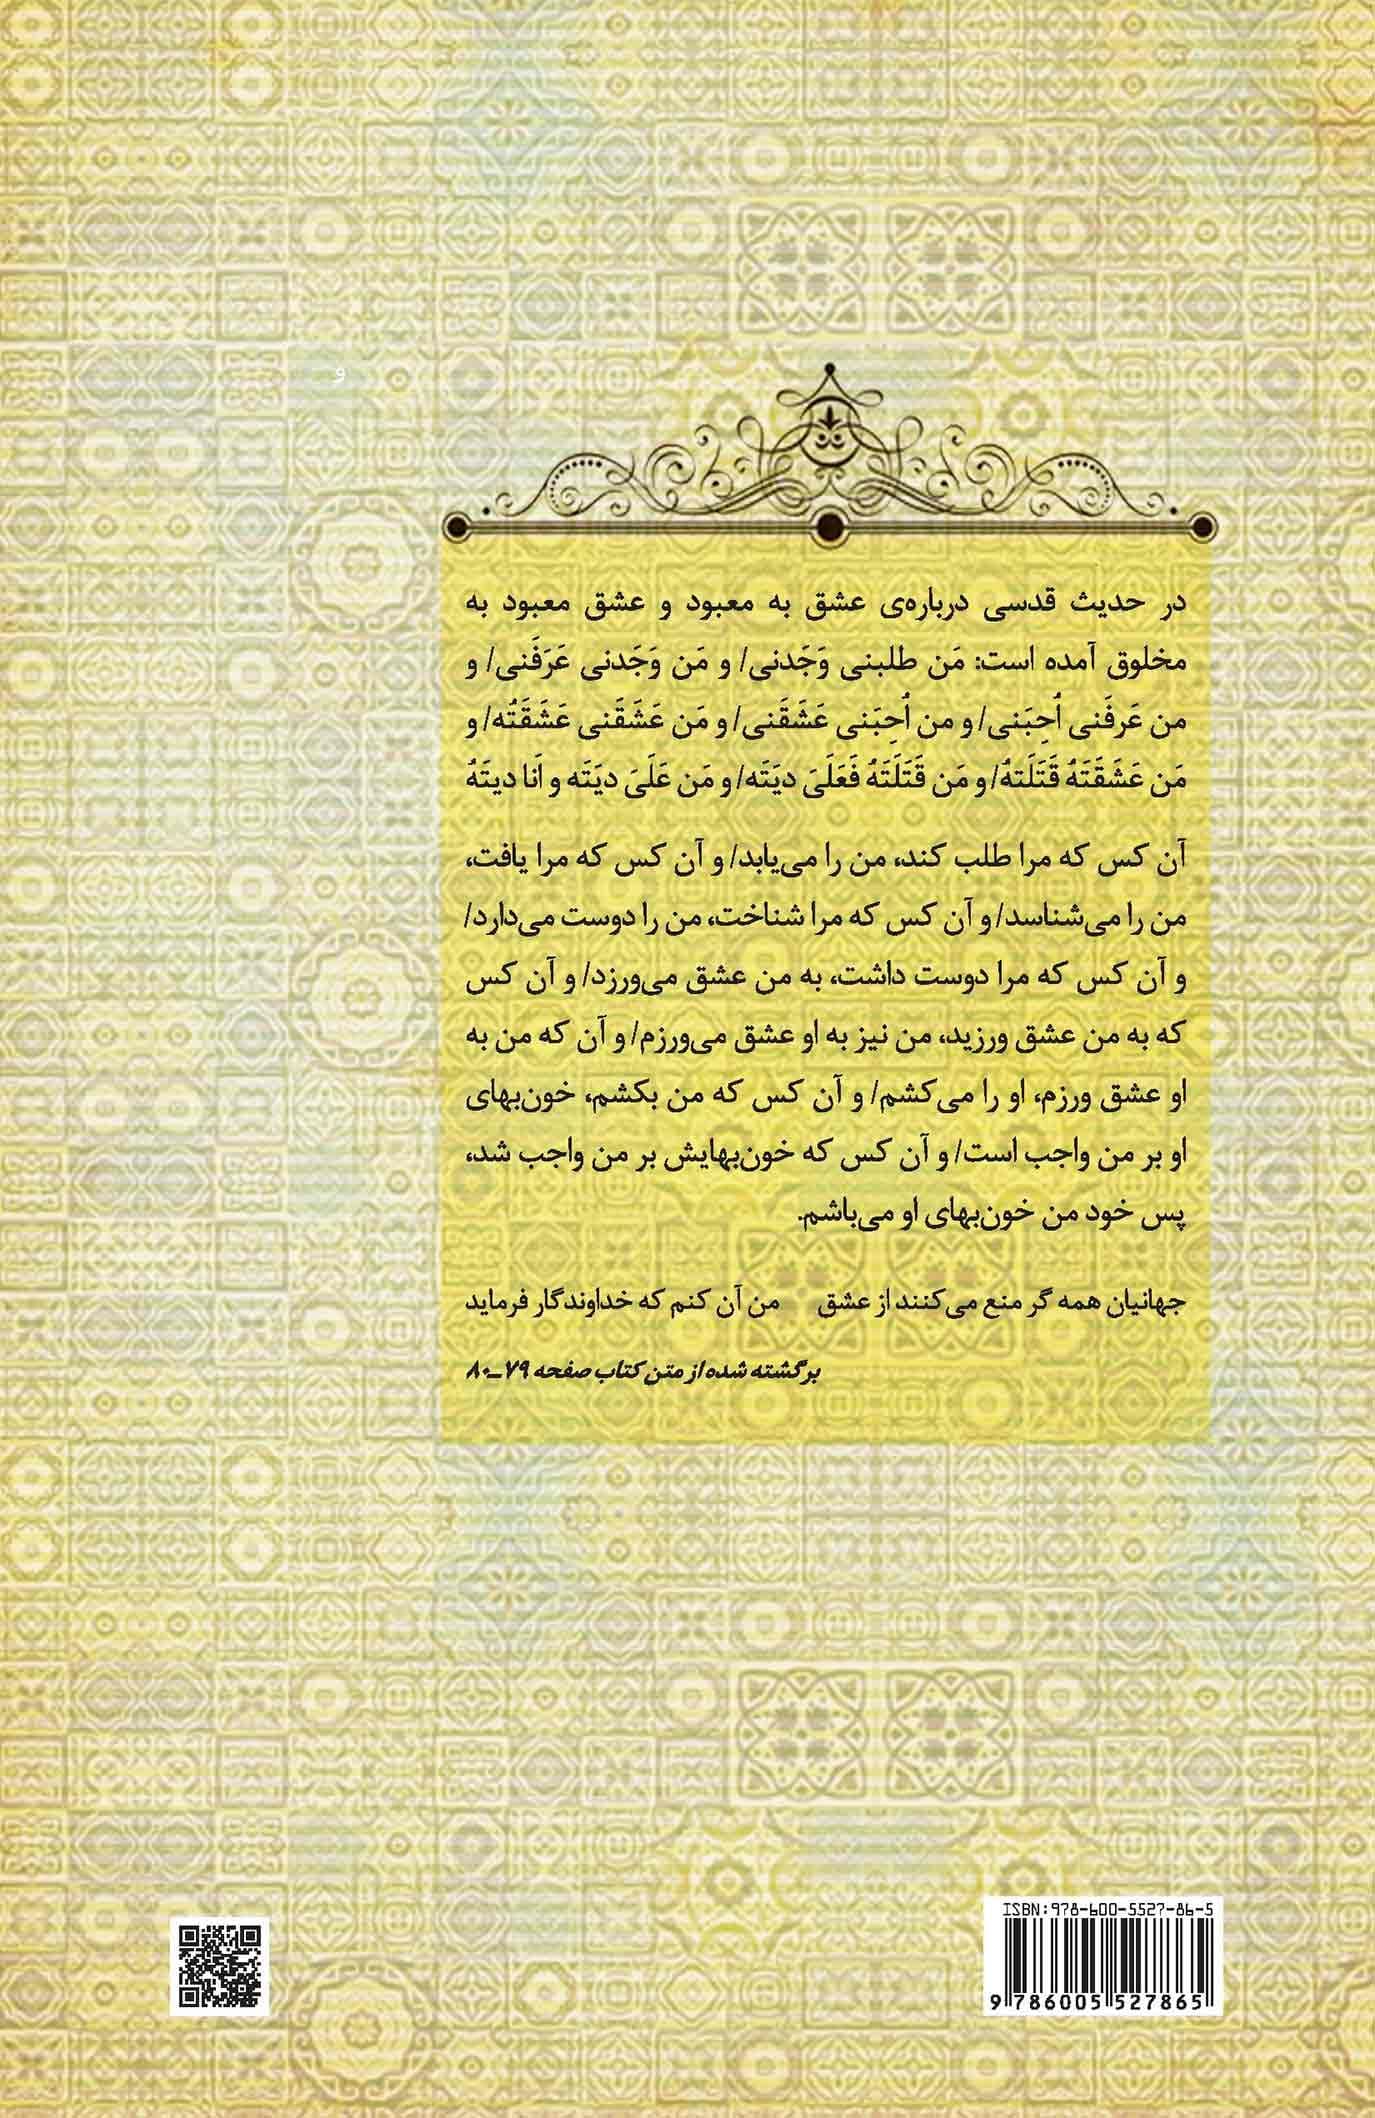 و
در حدیث قدسی درباره‌ی عشق به معبود و عشق معبود به
مخلوق آمده است: مَن طلبنی وَجَدنی/ و مَن وَجَدنی عَرَفَنی/ و
من عَرفَنی اُحِبَنی/ و من اُحِبَنی عَشَقَنی/ و مَن عَشَقَنی عَشَقَتُه/ و
مَن عَشَقَتَهُ قَتَلَتهُ/ و مَن قَتَلَتَهُ فَعَلَیَ دیَتَه/ و مَن عَلَیَ دیَتَه و اَنا دیتَهُ
آن کس که مرا طلب کند، من را می‌یابد/ و آن کس که مرا یافت،
من را می‌شناسد/ و آن کس که مرا شناخت، من را دوست می‌دارد/
و آن کس که مرا دوست داشت، به من عشق می‌ورزد/ و آن کس
که به من عشق ورزید، من نیز به او عشق می‌ورزم/ و آن که من به
او عشق ورزم، او را می‌کشم/ و آن کس که من بکشم، خون‌بهای
او بر من واجب است/ و آن کس که خون‌بهایش بر من واجب شد،
پس خود من خون‌بهای او می‌باشم.
جهانیان همه گر منع می‌کنند از عشق من آن کنم که خداوندگار فرماید
برگشته شده از متن کتاب صفحه ۷۹_۸۰
ISBN:978-600-5527-86-5
9 786005 527865